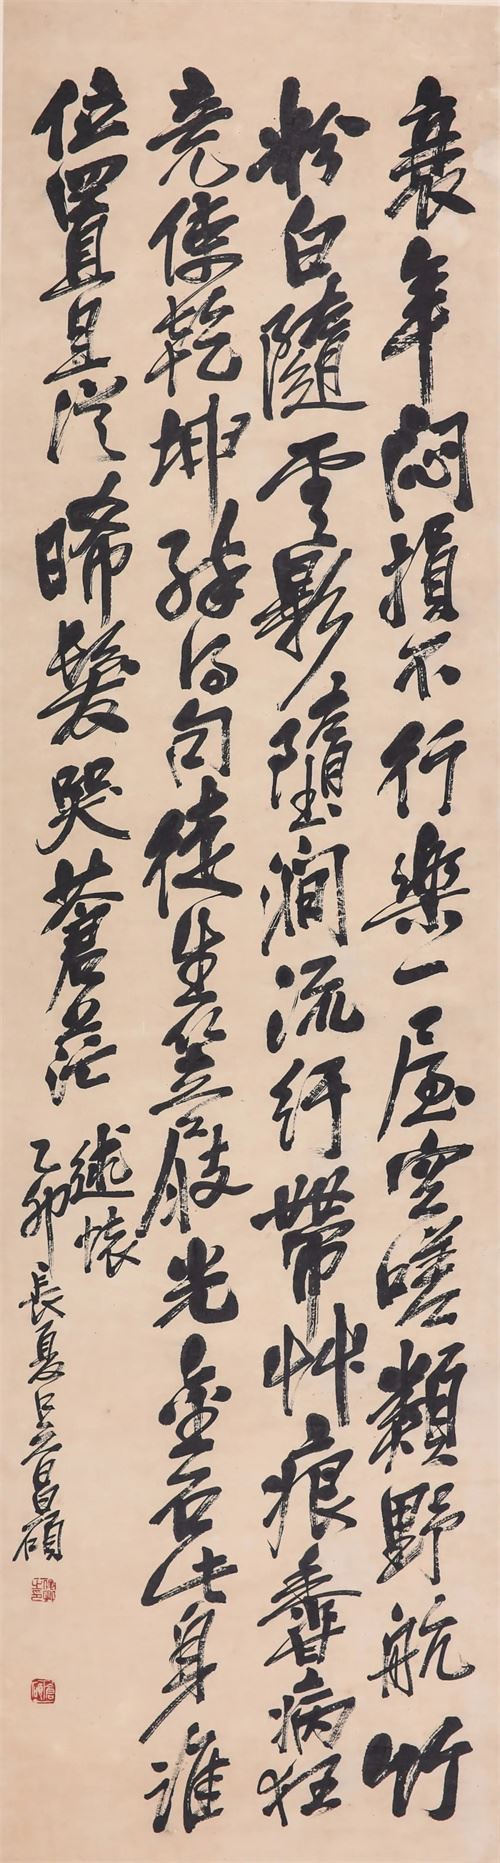 衰年悶損不行樂一屋空嗟類野航竹
粉白隨雲影墮澗流紆帶艸痕香病狂
竟使乾坤醉得句徒生笠屐光金石此身誰
位置從晞髮哭蒼茫
述懷
乙卯長夏吳昌碩